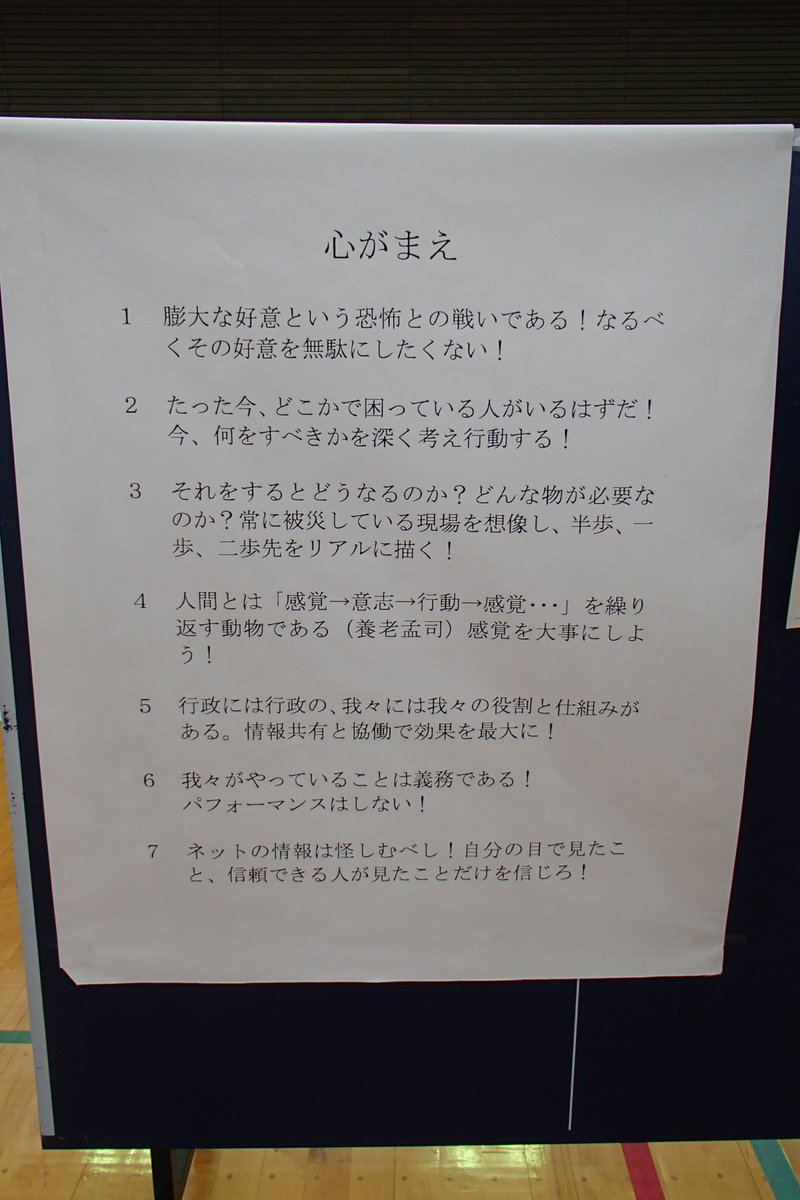 心がまえ
1 膨大な好意という恐怖との戦いである！なるべ
くその好意を無駄にしたくない！
2 たった今、どこかで困っている人がいるはずだ！
今、何をすべきかを深く考え行動する！
3 それをするとどうなるのか？どんな物が必要な
のか？常に被災している現場を想像し、半歩、一
歩、二歩先をリアルに描く！
4 人間とは「感覚→意志→行動→感覚･･･」を繰り
返す動物である（養老孟司）感覚を大事にしよ
う！
5 行政には行政の、我々には我々の役割と仕組みが
ある。情報共有と協働で効果を最大に！
6 我々がやっていることは義務である！
パフォーマンスはしない！
7 ネットの情報は怪しむべし！自分の目で見たこ
と、信頼できる人が見たことだけを信じろ！